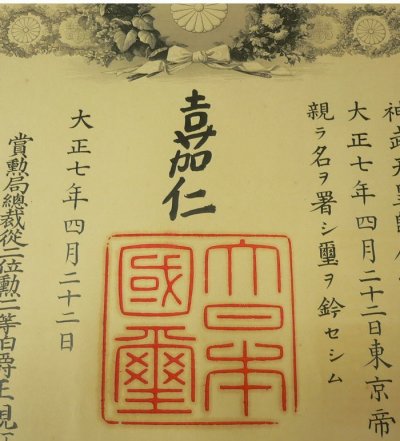 神武天皇
大正七年四月二十二日東京帝
親ラ名ヲ署シ璽ヲ鈐セシム
嘉仁
大日本
國璽
大正七年四月二十二日
賞勲局總裁從二位勲一等伯爵正親